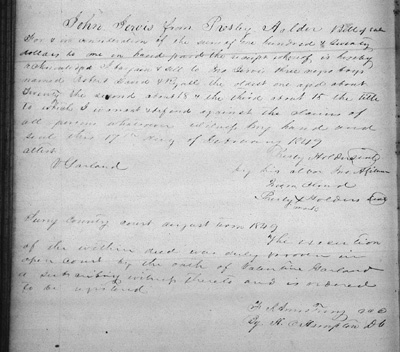 John Lewis from Presly Holder Bill of Sale
For & in consideration of the sum of five hundred & twenty
dollars to me in hand paid the receipt whereof, is hereby
acknowledged I bargain & sell to Jno Lewis three negro boys
named Robert David & the oldest one aged about
twenty the second about 18 & the third about 15 the title
to which I warrant & defend against the claims of
all persons whatsoever witness my hand and
seal this 17th day of February 1847
attest Presly Holder
V Garland by his
Presly X Holder
mark
Surry County court august term 1847
The execution
of the within deed was duly proven in
open court by the oath of Valentine Garland
a subscribing witness thereto and is ordered
to be registered
F K Armstrong